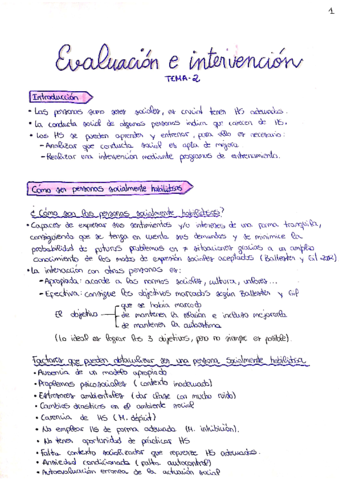 1
Evaluación e intervención
TEMA-2
Introducción
• Las personas somos seres sociales, es crucial tener HS adecuadas.
• La conducta social de algunas personas indica que carecen de HS.
• Las HS se pueden aprender y entrenar, para ello es necesario:
- Analizar que conducta social es apta de mejora
- Realizar una intervención mediante programas de entrenamiento.
Cómo son personas socialmente habilidosas
¿Cómo son las personas socialmente habilidosas?
• Capaces de expresar sus sentimientos y/o intereses de una forma tranquila,
consiguiendo que se tenga en cuenta sus demandas y se minimice la
probabilidad de futuros problemas en ≠ situaciones gracias a un amplio
conocimiento de los modos de expresión sociales aceptados (Ballester y Gil
• La interacción con otras personas es:
- Apropiada: acorde a las normas sociales, cultura, valores...
- Efectiva: consigue los objetivos marcados según Ballester y Gil
que se había marcado
El objetivo de mantener la relación e incluso mejorarla
de mantener la autoestima
(lo ideal es lograr los 3 objetivos, pero no siempre es posible).
Factores que pueden obstaculizar ser una persona socialmente habilidosa
• Ausencia de un modelo apropiado
• Problemas psicosociales (contexto inadecuado)
• Estresores ambientales (dar clase con mucho ruido)
• Cambios drásticos en el ambiente social
• Carencia de HS (H. déficit)
• No emplear HS de forma adecuada (H. inhibición).
• No tener oportunidad de prácticas HS
• Falta contexto socializador que refuerce HS adecuadas.
• Ansiedad condicionada (falta autocontrol)
• Autoevaluación errónea de la actuación social